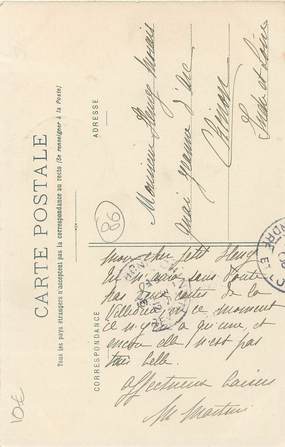 CARTE POSTALE
Tous les pays étrangers n'acceptent pas la correspondance au recto (Se renseigner à la Poste)
CORRESPONDANCE
ADRESSE
Monsieur
quai Jeanne d'arc
Chinon
Indre et Loire
86
mon cher petit
Tu n'auras sans doute
pas deux cartes de la
en ce moment
ce n'y a qu'une, et
encore elle n'est pas
très belle.
Affectueux baisers
M Martin
10€